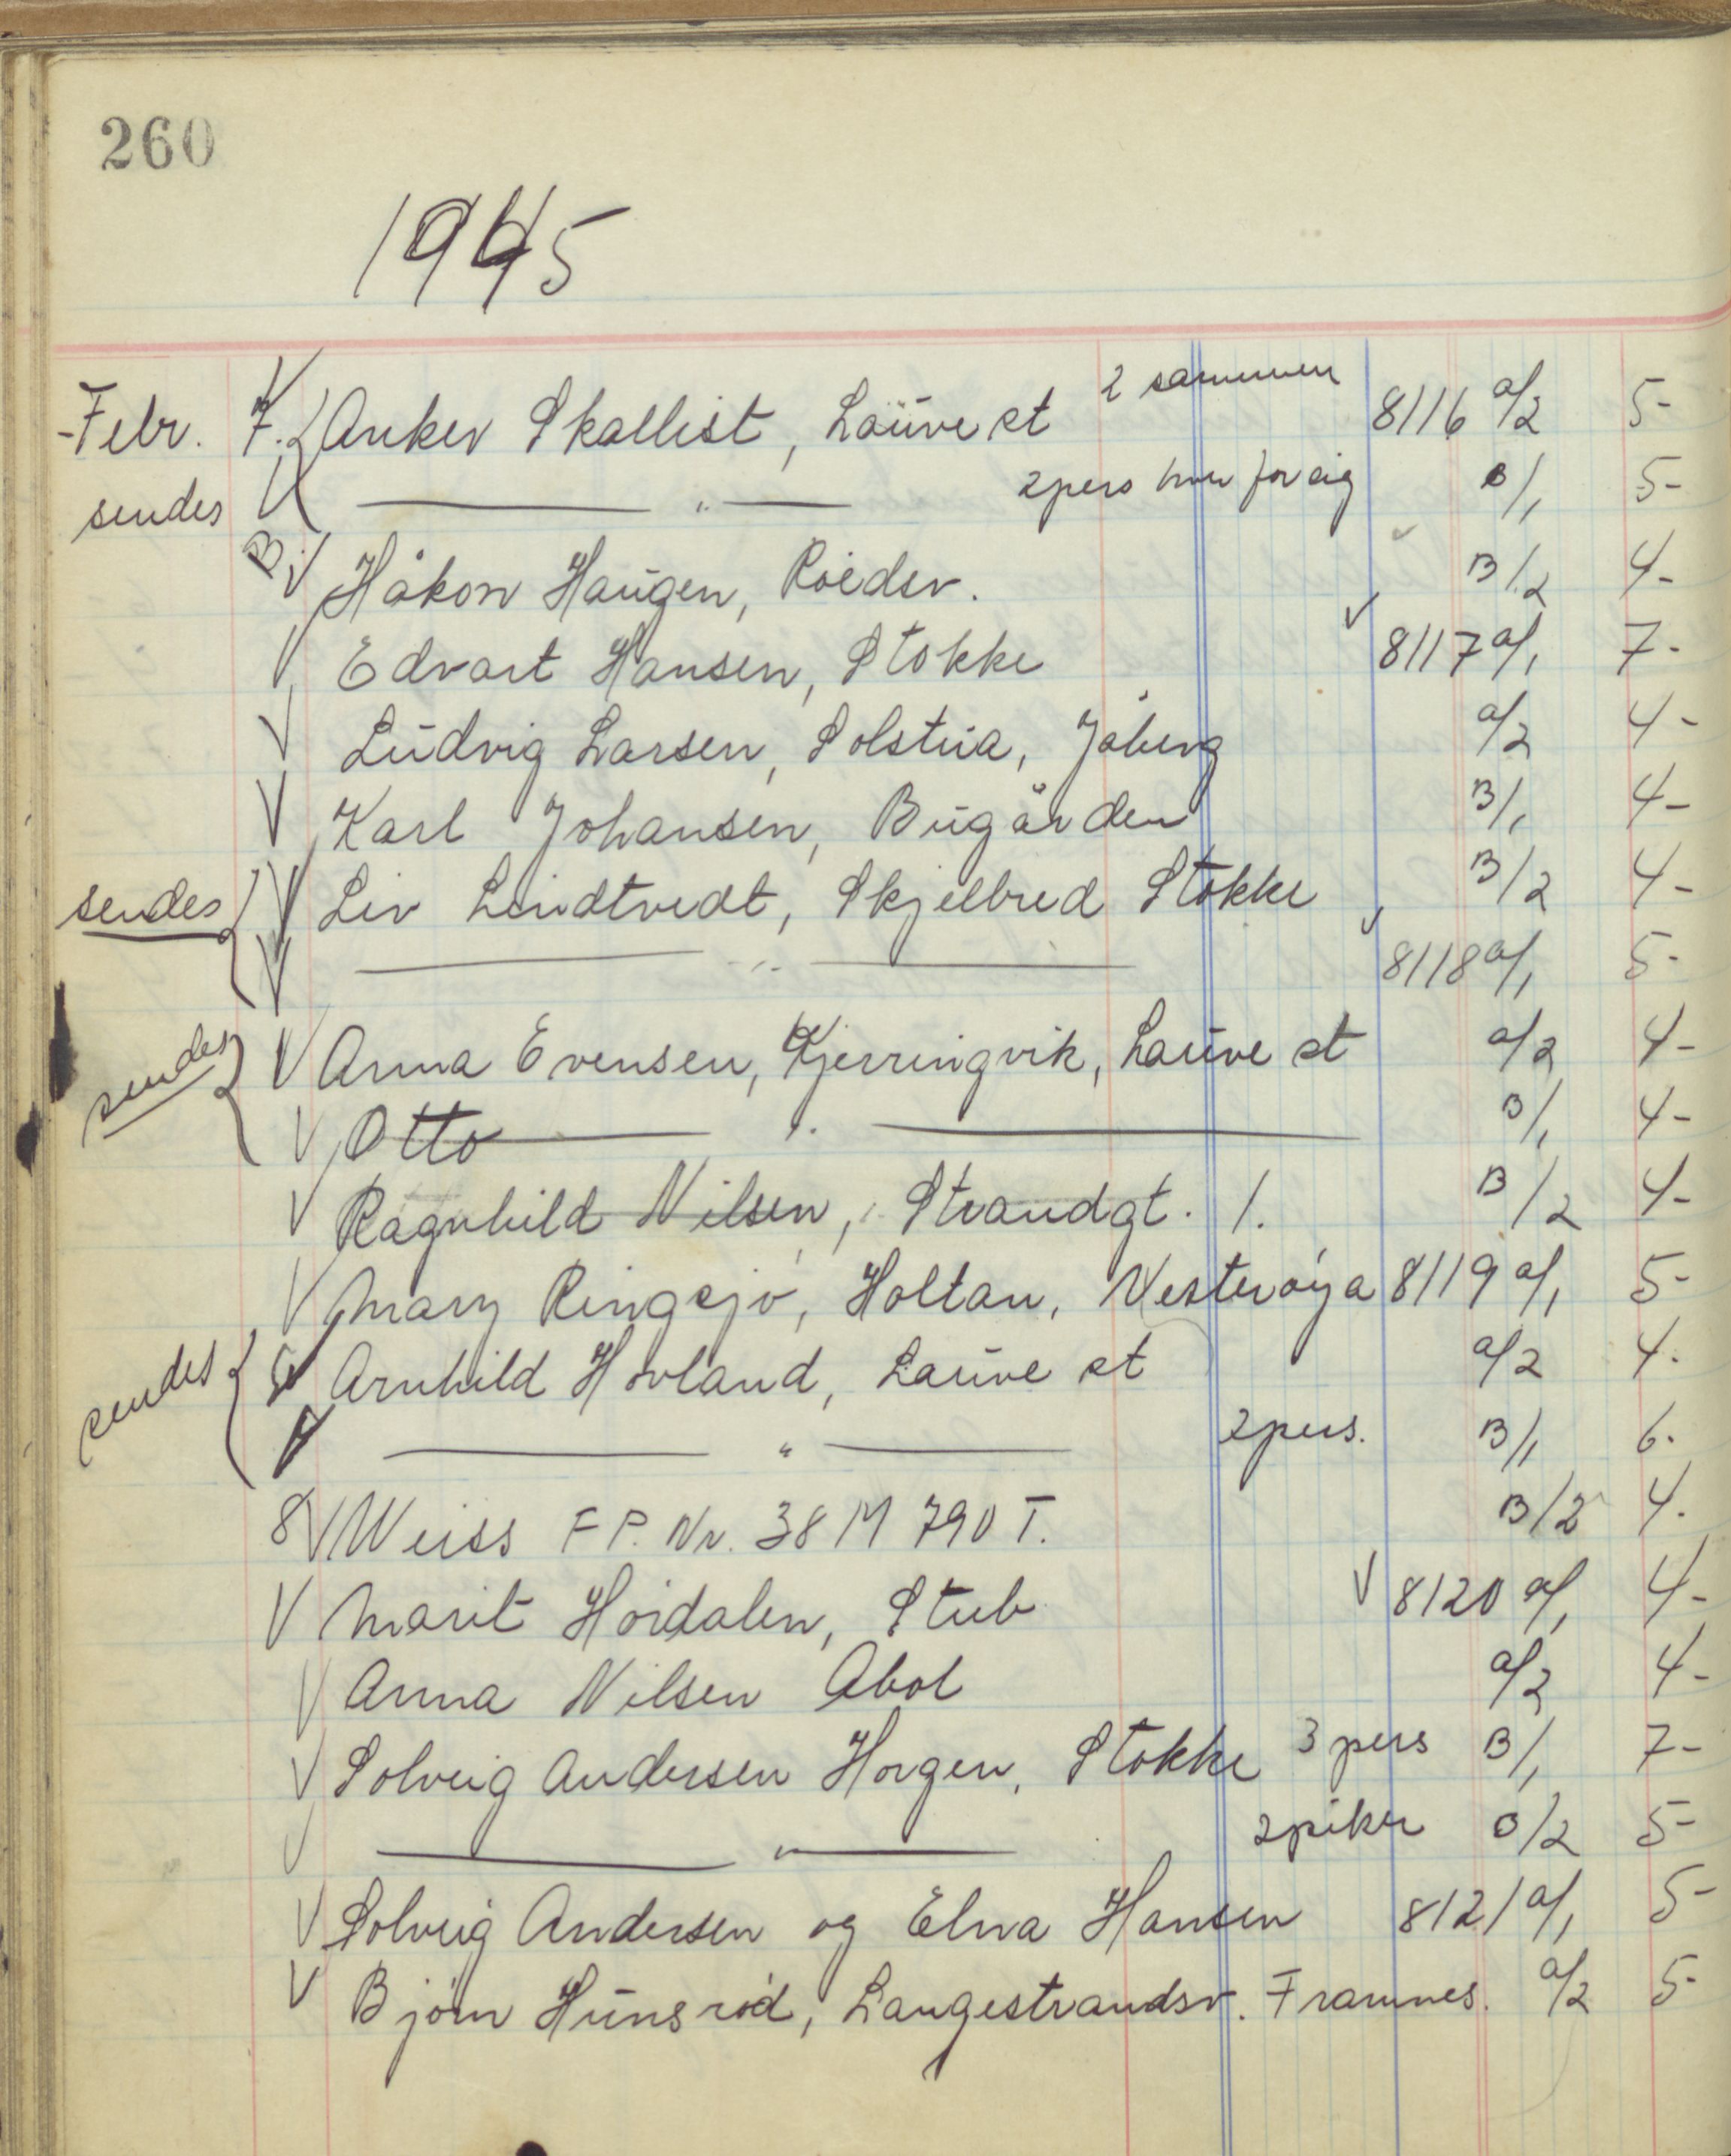 260
1945
Febr. 7. Anker Skallist, Lauve st 2 sammen 8116 a/2 5-
sendes — " — 2 pers hver for sig B/1 5-
B. Håkon Haugen, Röedsv. B/2 4-
Edvart Hansen, Stokke 8117 a/1 7-
Ludvig Larsen, Solstua, Jåberg a/2 4-
Karl Johansen, Bugården B/1 4-
sendes Liv Lindtvedt, Skjelbred Stokke B/2 4-
— " — 8118 a/1 5-
sendes Anna Evensen, Kjerringvik, Lauve st a/2 4-
Otto — " — B/1 4-
Ragnhild Nilsen, Strandgt. 1. B/2 4-
Mary Ringsjö, Holtan, Vesteröya 8119 a/1 5-
sendes Arnhild Hovland, Lauve st a/2 4-
— " — 2 pers. B/1 6-
8 Weiss F P. Nr. 38 M 790 T. B/2 4.
Marit Höidalen, Stub 8120 a/1 4-
Anna Nilsen Abol a/2 4-
Solveig Andersen Horgen, Stokke 3 pers B/1 7-
— " — 2 piker B/2 5-
Solveig Andersen og Elna Hansen 8121 a/1 5-
Björn Hunsröd, Langestrandsv. Framnes. a/2 5-